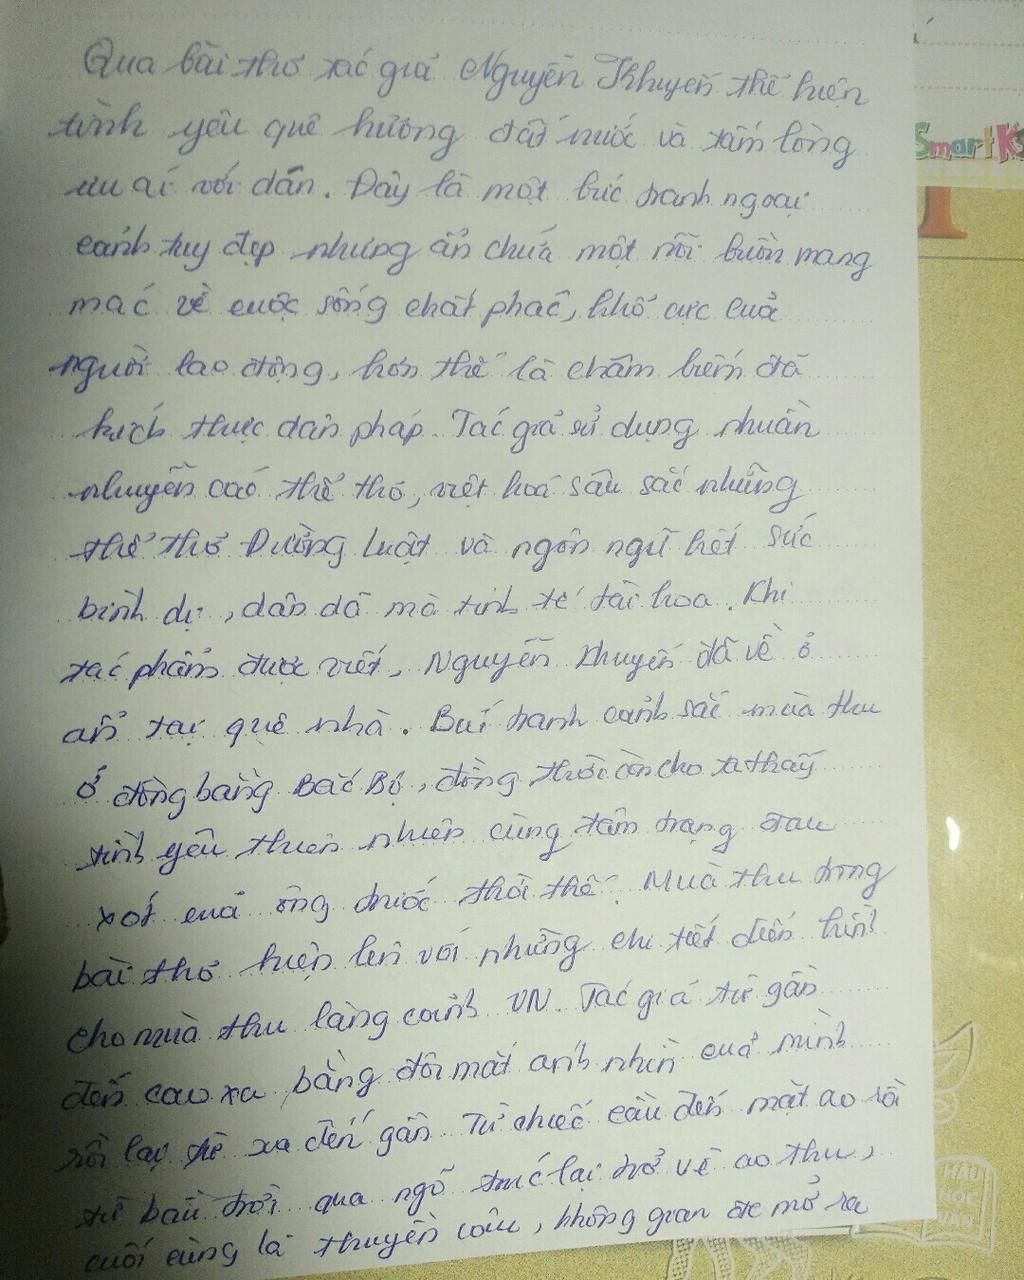 Qua bài thơ tác giả Nguyễn Khuyến thể hiện
tình yêu quê hương đất nước và tấm lòng
ưu ái với dân. Đây là một bức tranh ngoại
cảnh tuy đẹp nhưng ẩn chứa một nỗi buồn mang
mác về cuộc sống chất phác, khổ cực của
người lao động, hơn thế là châm biếm đả
kích thực dân pháp. Tác giả sử dụng nhuần
nhuyễn các thể thơ, việt hoá sâu sắc những
thể thơ Đường luật và ngôn ngữ hết sức
bình dị, dân dã mà tinh tế tài hoa. Khi
tác phẩm được viết, Nguyễn Khuyến đã về ở
ẩn tại quê nhà. Bức tranh cảnh sắc mùa thu
ở đồng bằng Bắc Bộ, đồng thời còn cho ta thấy
tình yêu thiên nhiên cùng tâm trạng đau
xót của ông trước thời thế. Mùa thu trong
bài thơ hiện lên với những chi tiết điển hình
cho mùa thu làng cảnh VN. Tác giả từ gần
đến cao xa bằng đôi mắt anh nhìn của mình
rồi lại từ xa đến gần. Từ chiếc cầu đến mặt ao rồi
từ bầu trời qua ngõ trúc lại trở về ao thu,
cuối cùng là thuyền câu, không gian đc mở ra
SmartK
1
MẪU
HỌC
VẤN